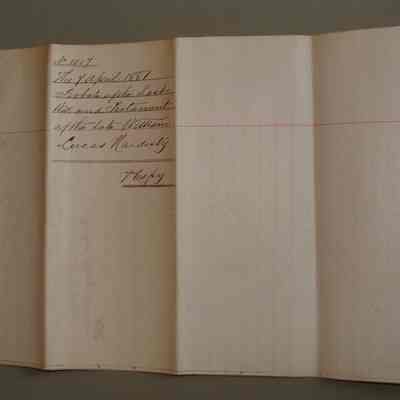 The 9 April 1881
Probate of the Last
Will and Testament
of the late William
Lucas Hardisty
Copy